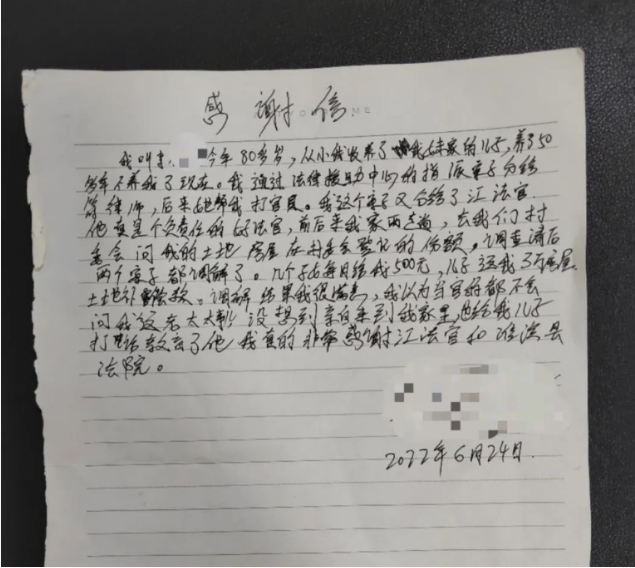 感谢信
我叫李 今年80多岁，从小我收养了我妹家的儿子，养了50
多年不养我了现在。我通过法律援助中心的指派案子分给
律师，后来她帮我打官民。我这个案子又分给了江法官
他真是个负责任的好法官，前后来我家两三趟，去我们村
委会问我的土地房屋在村委会登记的份额。调查清后
两个案子都调解了。儿子每月给我500元，儿子返我3万房屋
土地补偿款。调解结果我很满意，我以为当官的都不会
问我这老太太 没想到亲自来到我家里，也给我儿子
打电话教育了他 我真的非常感谢江法官和濉溪县
法院。
2022年6月24日.